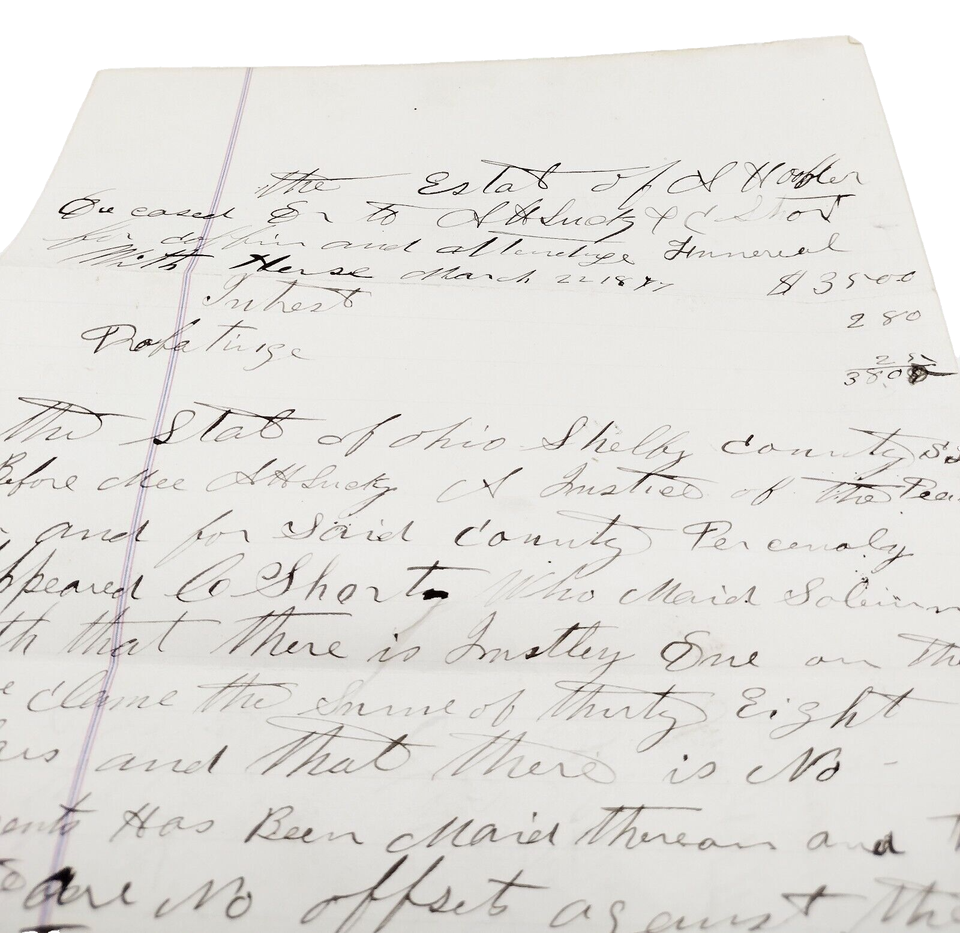 the Estat of A Hoofler
Deceased Dr to A H Lucky & C Short
for coffin and attendige Funneral
With Herse March 22 18
$ 35 00
Intrest
2 80
Profatinge
25
38.05
the Stat of ohio Shelby County SS
Before Mee A H Lucky A Justice of the Pea
and for Said County Percenaly
ppeared C Short Who Maid Solemn
th that there is Justley Due on the
e Clame the Sume of thirty Eight
ars and that there is No
ents Has Been Maid thereon and
are No offsets against the